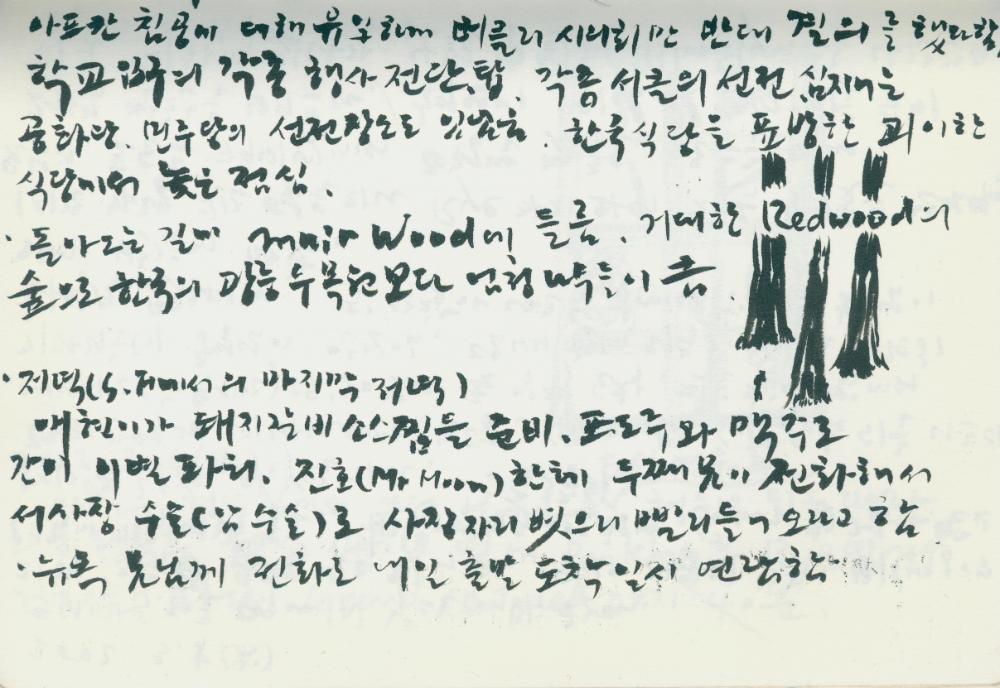 아프칸 침공에 대해 유일하게 버클리 시의회만 반대 질의를 했다함
학교입구의 각종 행사 전단, 탑, 각종 서클의 선전, 심지어는
공화당, 민주당의 선전장소도 있었음. 한국식당을 표방한 괴이한
식당에서 늦은 점심.
· 돌아오는 길에 Muir Wood에 들름. 거대한 Redwood의
숲으로 한국의 광릉수목원보다 엄청 나무들이 큼.
· 저녁(S.F에서의 마지막 저녁)
매현이가 돼지갈비 소스찜을 준비, 포도주와 맥주로
간이 이별 파티. 진호(Mr Moon)한테 두째 가 전화해서
서사장 수술(암수술)로 사장자리 빨리 들어오라고 함
· 뉴욕 누님께 전화로 내일 출발 도착일시 연락함